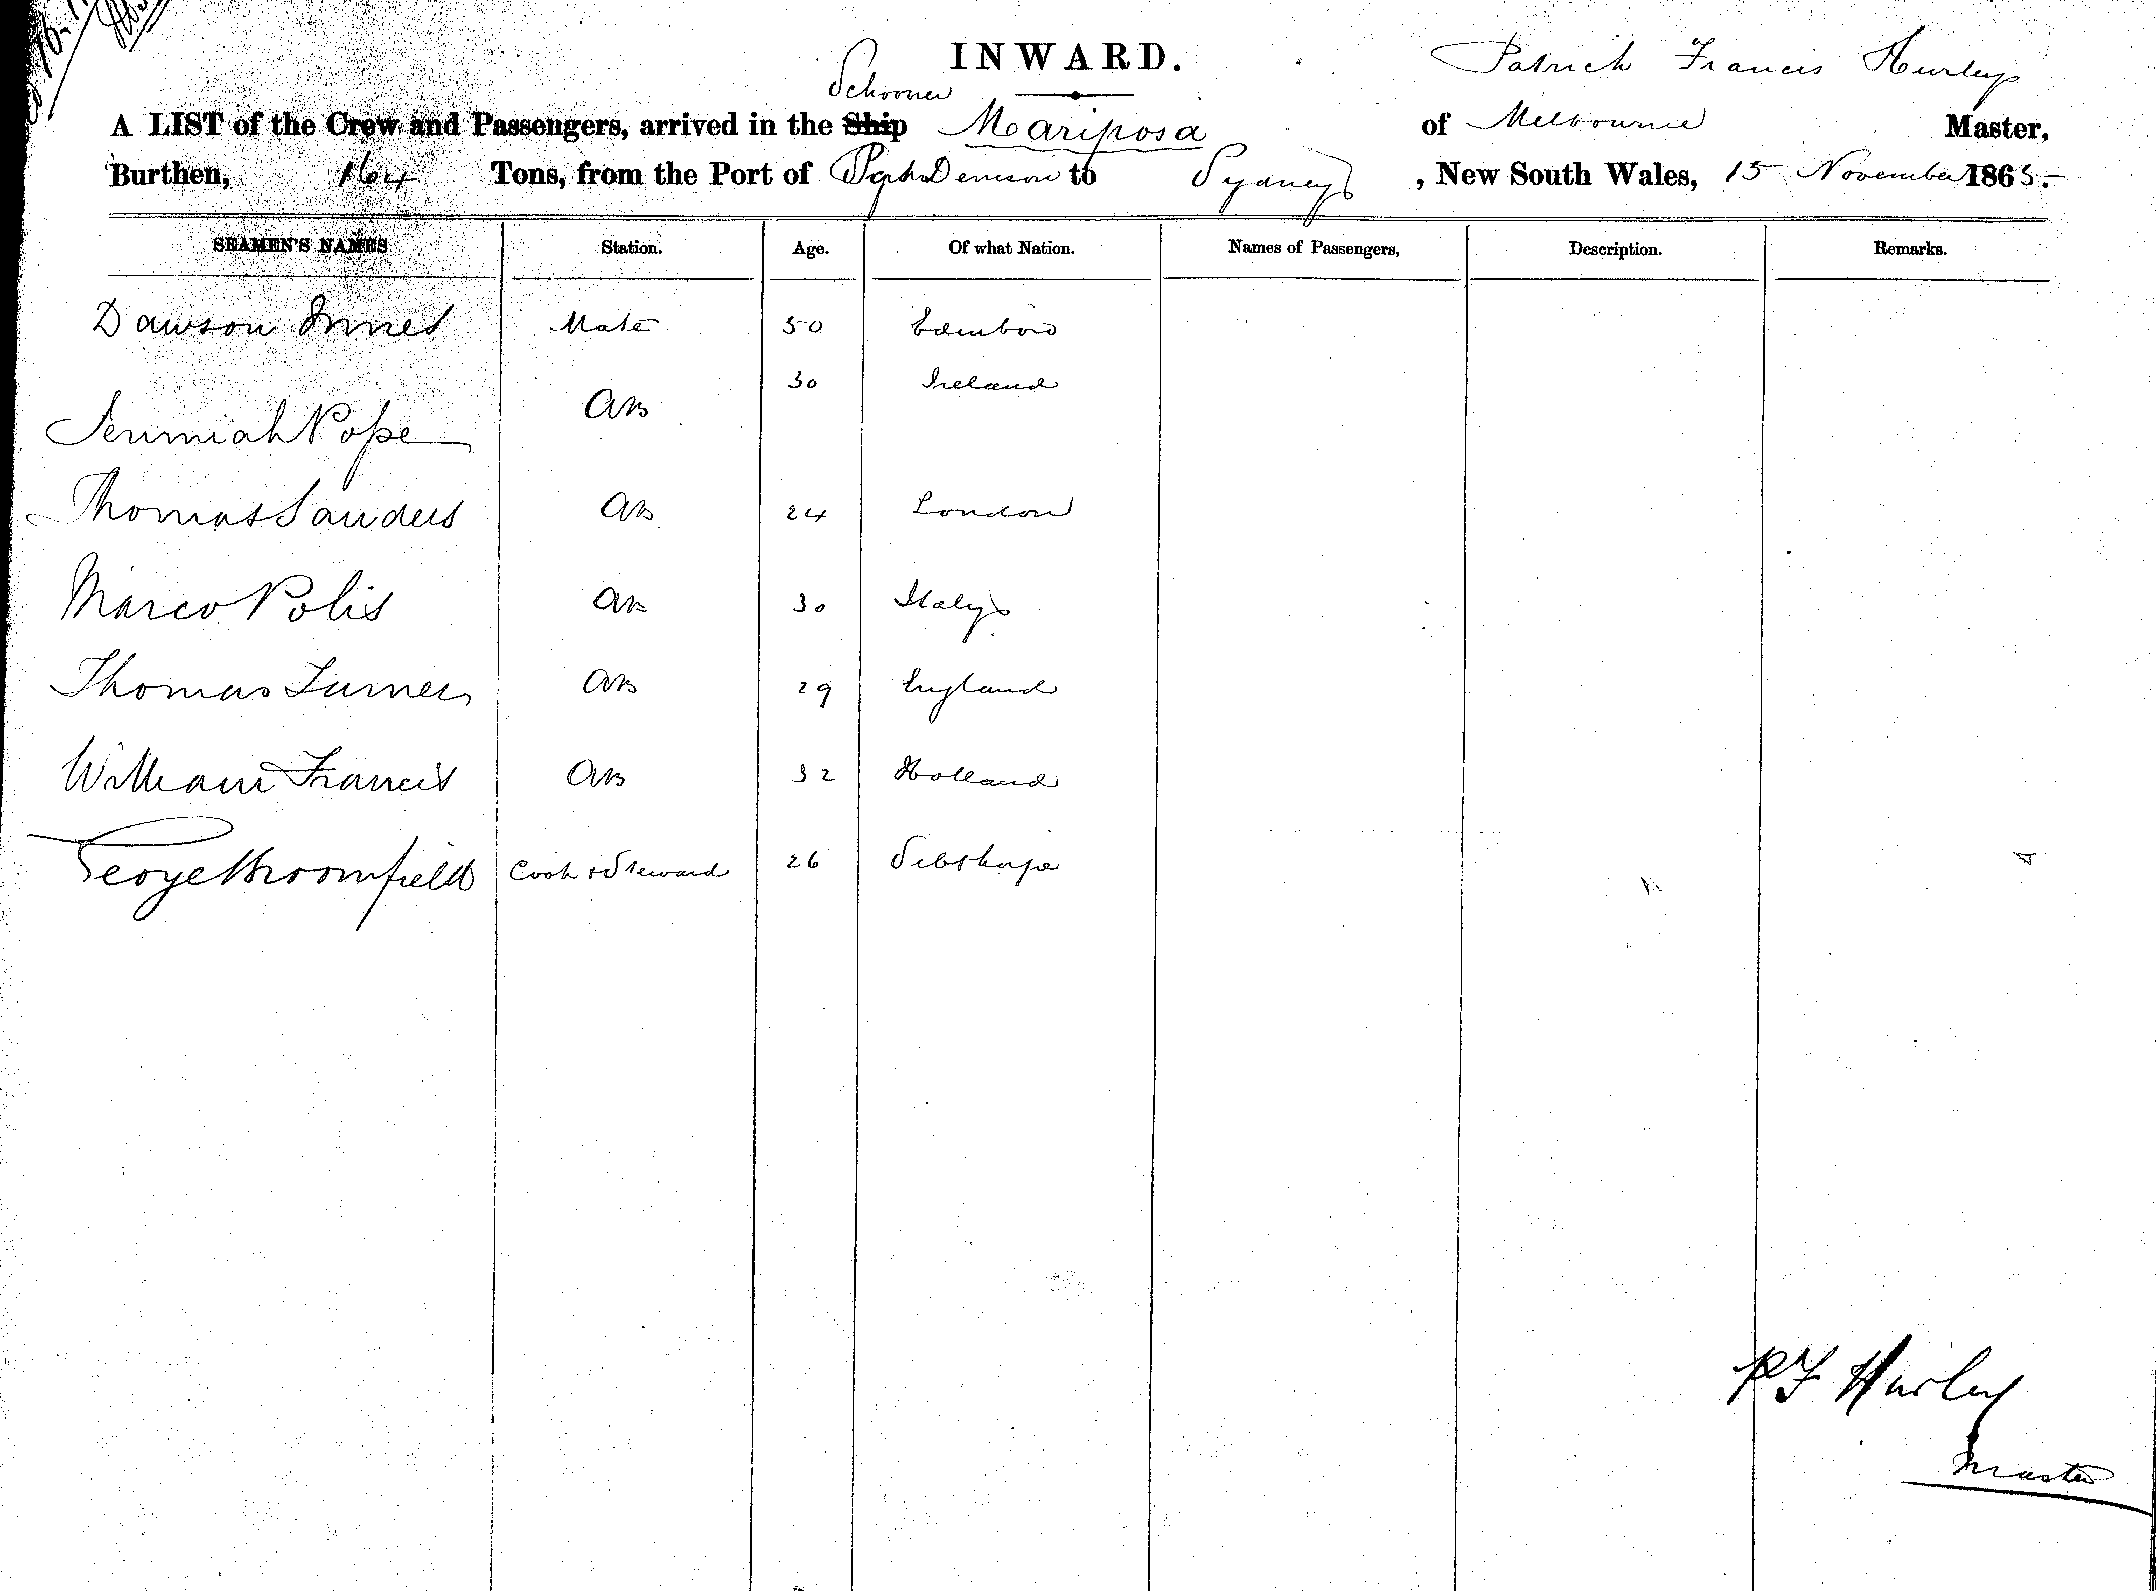 INWARD.
Patrick Francis Hurley
Schooner
A LIST of the Crew and Passengers, arrived in the Ship Mariposa of Melbourne Master,
Burthen, 164 Tons, from the Port of Port Denison to Sydney, New South Wales, 15 November 1865.
SEAMEN'S NAMES Station. Age. Of what Nation. Names of Passengers, Description. Remarks.
Dawson Innes Mate 50 Edinboro
Jerimiah Pope AB 30 Ireland
Thomas Sanders AB 24 London
Marco Polis AB 30 Italy
Thomas Turner AB 29 England
William Francis AB 32 Holland
George Broomfield Cook & Steward 26
P F Hurley
Master